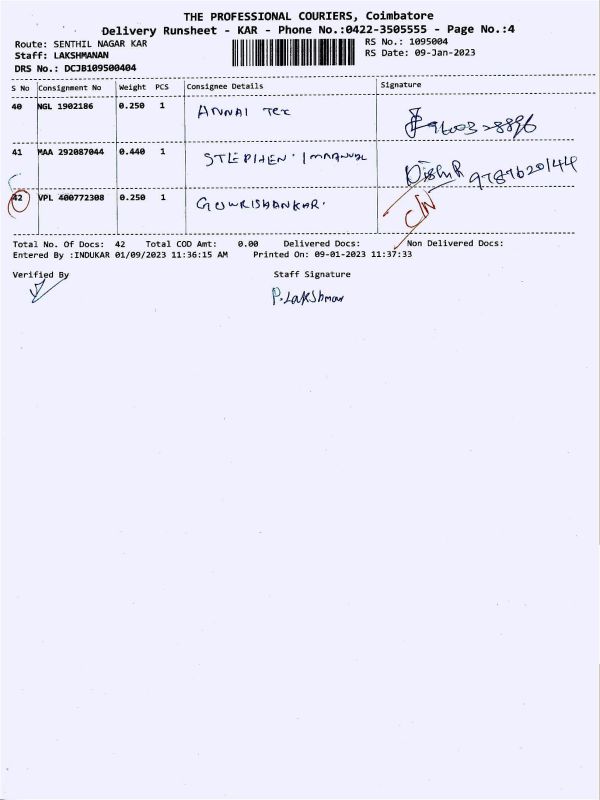 THE PROFESSIONAL COURIERS, Coimbatore
Delivery Runsheet - KAR - Phone No.:0422-3505555 - Page No.:4
Route: SENTHIL NAGAR KAR
RS No.: 1095004
Staff: LAKSHMANAN
RS Date: 09-Jan-2023
DRS No.: DCJB109500404
S No Consignment No Weight PCS Consignee Details Signature
40 NGL 1902186 0.250 1 ANNAI Tex
41 MAA 292087044 0.440 1 STEPHEN IMMANUEL
9787620144
42 VPL 400772308 0.250 1 GOWRISHANKAR. C/N
Total No. Of Docs: 42 Total COD Amt: 0.00 Delivered Docs: Non Delivered Docs:
Entered By :INDUKAR 01/09/2023 11:36:15 AM Printed On: 09-01-2023 11:37:33
Verified By Staff Signature
P.Lakshman